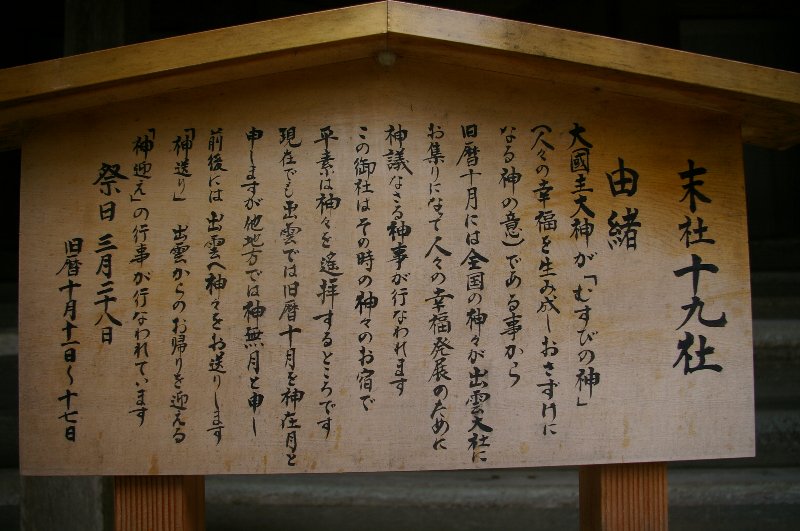 末社十九社
由緒
大國主大神が「むすびの神」
(人々の幸福を生み成しおさずけに
なる神の意)である事から
旧暦十月には全国の神々が出雲大社に
お集りになって人々の幸福発展のために
神議なさる神事が行なわれます
この御社はその時の神々のお宿で
平素は神々を遙拝するところです
現在でも出雲では旧暦十月を神在月と
申しますが他地方では神無月と申し
前後には出雲へ神々をお送りします
「神送り」 出雲からのお帰りを迎える
「神迎え」の行事が行なわれています
祭日 三月二十八日
旧暦十月十一日〜十七日